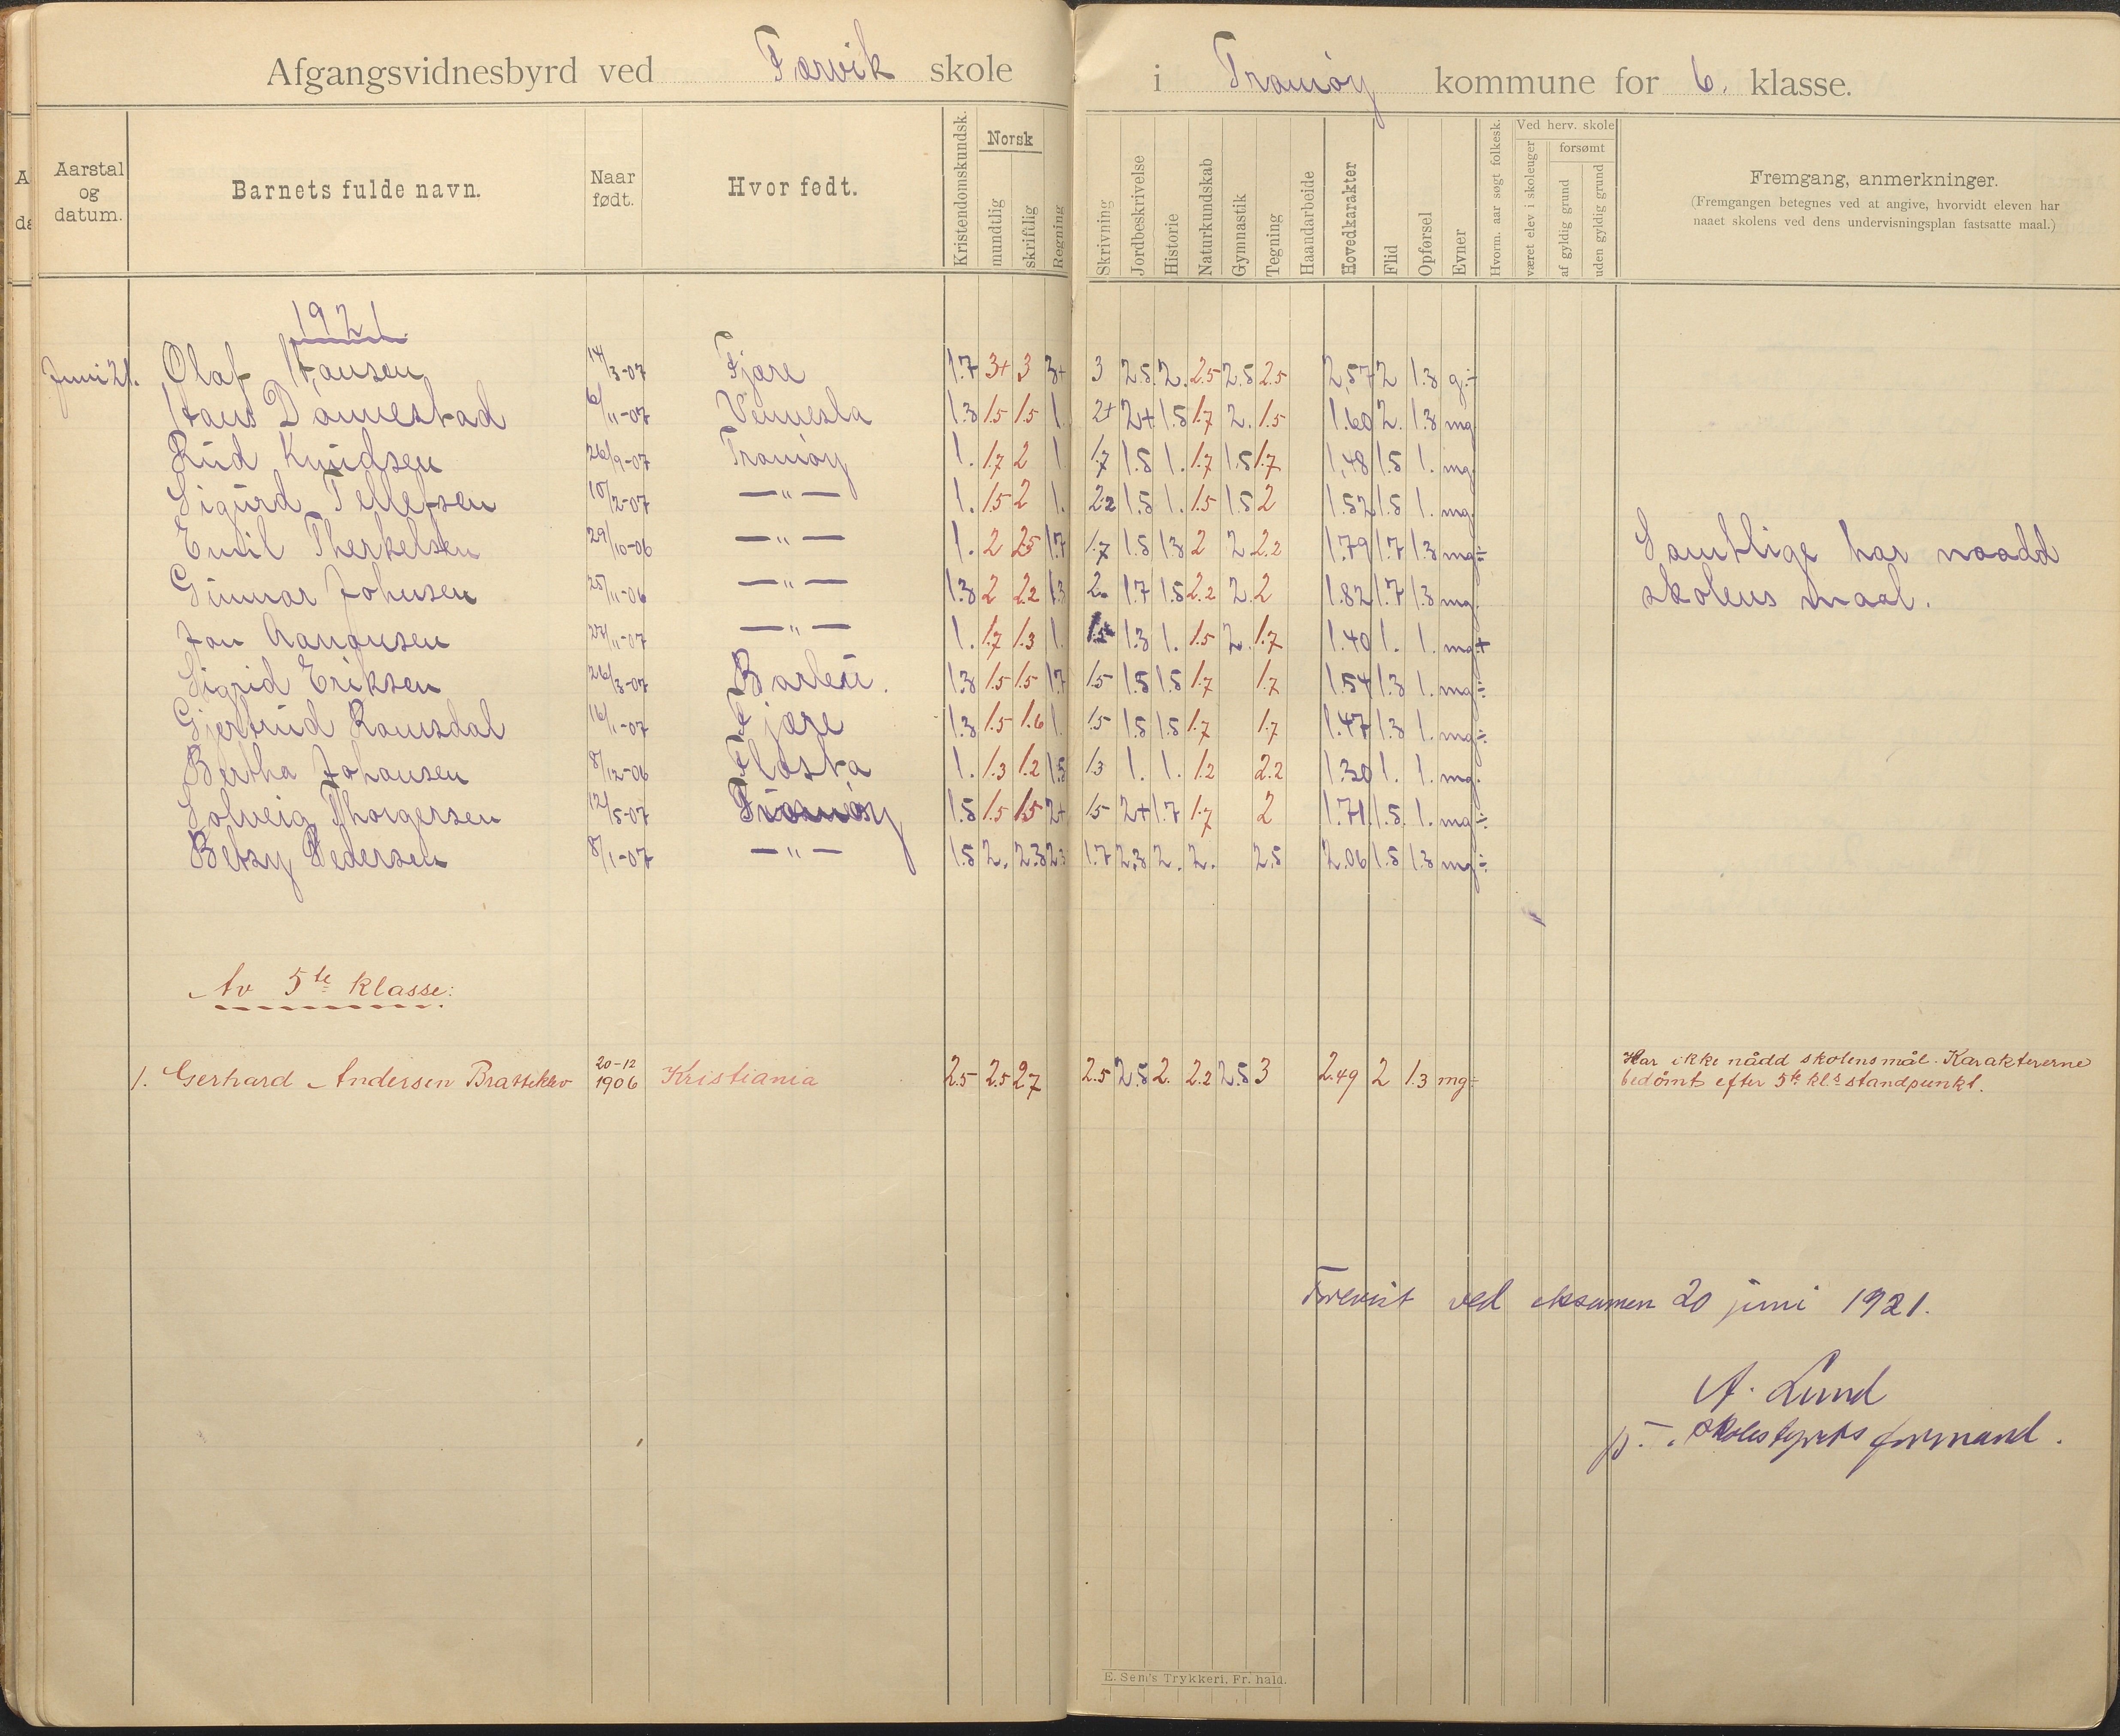 Afgangsvidnesbyrd ved Færvik skole i Tromøy kommune for 6. klasse.
Aarstal og datum.
Barnets fulde navn.
Naar født.
Hvor født.
Kristendomskundsk.
Norsk
mundtlig
skriftlig
Regning
Skrivning
Jordbeskrivelse
Historie
Naturkundskab
Gymnastik
Tegning
Haandarbeide
Hovedkarakter
Flid
Opførsel
Evner
Hvorm. aar søgt folkesk.
Ved herv. skole
været elev i skoleuger
forsømt
af gyldig grund
uden gyldig grund
Fremgang, anmerkninger.
(Fremgangen betegnes ved at angive, hvorvidt eleven har
naaet skolens ved dens undervisningsplan fastsatte maal.)
1921.
Juni 21. Olaf Hansen 14/3-07 Fjære 1.7 3+ 3 3+ 3 2.5 2. 2.5 2.5 2.5 2,57 2 1.3 g.÷
Hans Dannestad 6/11-07 Vennesla 1.3 1.5 1.5 1. 2+ 2+ 1.5 1.7 2. 1.5 1.60 2. 1.3 mg
Rud Knudsen 26/9-07 Tromøy 1. 1.7 2 1 1.7 1.5 1. 1.7 1.5 1.7 1,48 1.5 1. mg.
Sigurd Tellefsen 10/2-07 —"— 1. 1.5 2 1. 2.2 1.5 1. 1.5 1.5 2 1.52 1.5 1. mg.
Emil Therkelsen 29/10-06 —"— 1. 2 2.5 1.7 1.7 1.5 1.3 2 2 2.2 1.79 1.7 1.3 mg÷
Gunnar Johnsen 25/11-06 —"— 1.3 2 2.2 1.3 2. 1.7 1.5 2.2 2. 2 1.82 1.7 1.3 mg.
Jon Aanonsen 22/11-07 —"— 1. 1.7 1.3 1. 1.5 1.3 1. 1.5 2. 1.7 1.40 1. 1. mg.+
Sigrid Eriksen 26/3-07 Barbu. 1.3 1.5 1.5 1.7 1.5 1.5 1.5 1.7 1.7 1.54 1.3 1. mg÷
Gjertrud Ramsdal 16/1-07 Fjære 1.3 1.5 1.6 1. 1.5 1.5 1.5 1.7 1.7 1.47 1.3 1. mg÷
Bertha Johansen 8/12-06 Flosta 1. 1.3 1.2 1.5 1.3 1. 1. 1.2 2.2 1.30 1. 1. mg.
Solveig Thorgersen 12/5-07 Tromøy 1.5 1.5 1.5 2+ 1.5 2+ 1.7 1.7 2 1.71 1.5. 1. mg÷
Betzy Pedersen 8/1-07 —"— 1.5 2. 2.3 2.3 1.7 2.3 2. 2. 2.5 2.06 1.5 1.3 mg÷
Samtlige har naadd
skolens maal.
Av 5te klasse:
1. Gerhard Andersen Brattekleiv 20-12 1906 Kristiania 2.5 2.5 2.7 2.5 2.5 2. 2.2 2.5 3 2.49 2 1.3 mg÷
Har ikke nådd skolens mål. Karakterene
bedømt efter 5te kl.s standpunkt.
Forevist ved eksamen 20 juni 1921.
A. Lund
p. t. skolestyrets formand.
E. Sem's Trykkeri, Fr.hald.